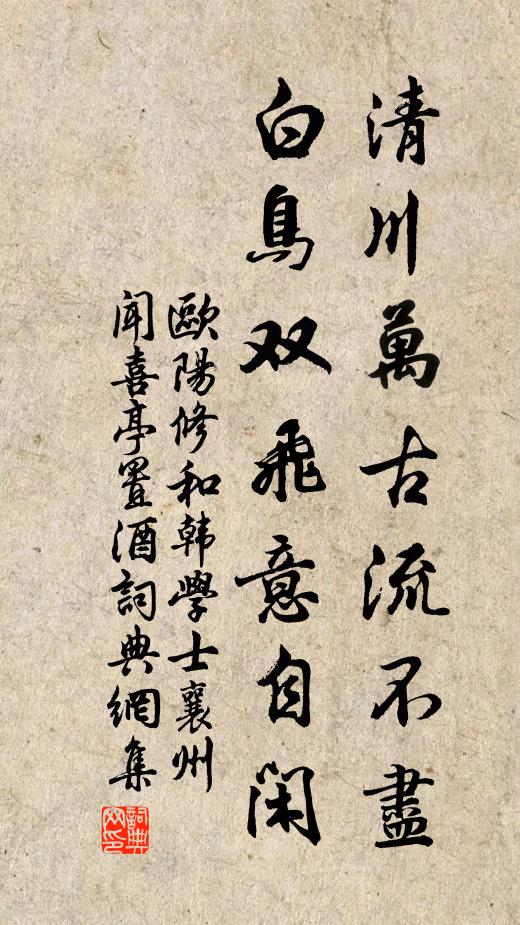 清川萬古流不盡
白鳥双飛意自閑
歐陽修和韩學士襄州
聞喜亭置酒詞典網集
詞典
网印